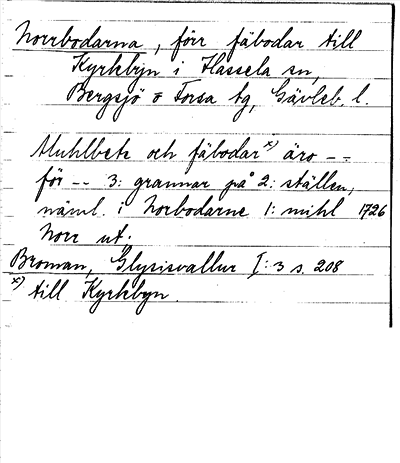 Norrbodarna, förr fäbodar till
Kyrkbyn i Hassela sn,
Bergsjö o Forsa tg, Gävleb. l.
Muhlbete och fäbodar x) äro --
för -- 3: grannar på 2: ställen,
näml. i Norbodarne 1: mihl 1726
Norr ut.
Broman, Glysisvallur I:3 s. 208
x) till Kyrkbyn.